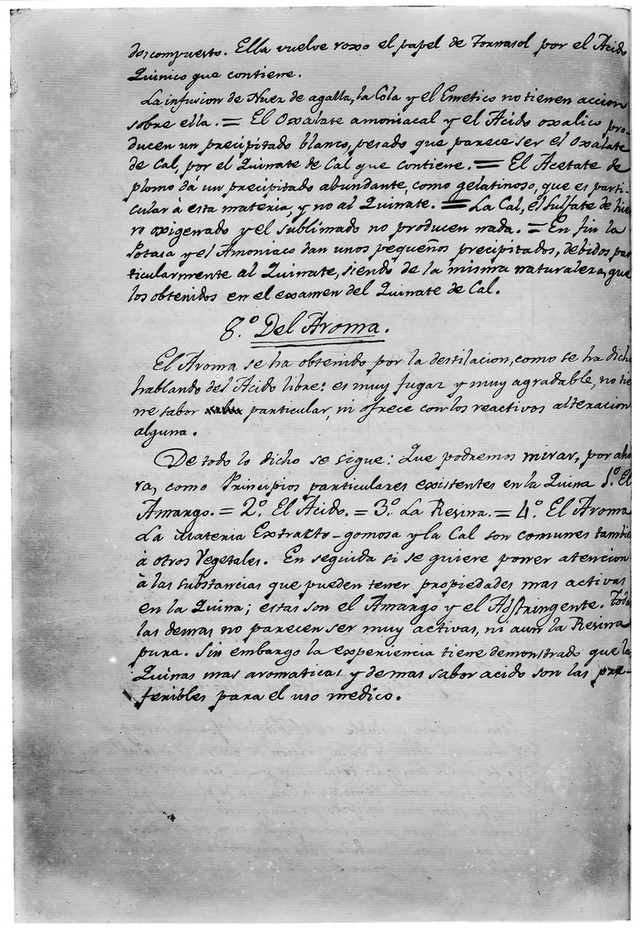 descompuesto. Ella vuelve roxo el papel de Tornasol por el Acido
Quinico que contiene.
La infusion de Nuez de agalla, la Cola y el Emetico no tienen accion
sobre ella. = El Oxalate amoniacal y el Acido oxalico pro-
ducen un precipitado blanco, pesado que parece ser el Oxalate
de Cal, por el Quinate de Cal que contiene. = El Acetate de
plomo da un precipitado abundante, como gelatinoso, que es parti-
cular à esta materia, y no al Quinate. = La Cal, el Sulfate de hier-
ro oxigenado y el sublimado no producen nada. = En fin la
Potasa y el Amoniaco dan unos pequeños precipitados, debidos par-
ticularmente al Quinate, siendo de la misma naturaleza, que
los obtenidos en el examen del Quinate de Cal.
8.º Del Aroma.
El Aroma se ha obtenido por la destilacion, como se ha dicho
hablando del Acido libre: es muy fugaz y muy agradable, no tie-
ne sabor particular, ni ofrece con los reactivos alteracion
alguna.
De todo lo dicho se sigue: Que podremos mirar, por aho-
ra, como Principios particulares existentes en la Quina 1.º El
Amargo. = 2.º El Acido. = 3.º La Resina. = 4.º El Aroma
La Materia Extracto-gomosa y la Cal son comunes tambien
à otros Vegetales. En seguida si se quiere poner atencion
à las substancias que pueden tener propiedades mas activas
en la Quina; estas son el Amargo y el Adstringente. Todas
las demas no parecen ser muy activas, ni aun la Resina
pura. Sin embargo la experiencia tiene demostrado que las
Quinas mas aromaticas y demas sabor acido son las pre-
feribles para el uso medico.